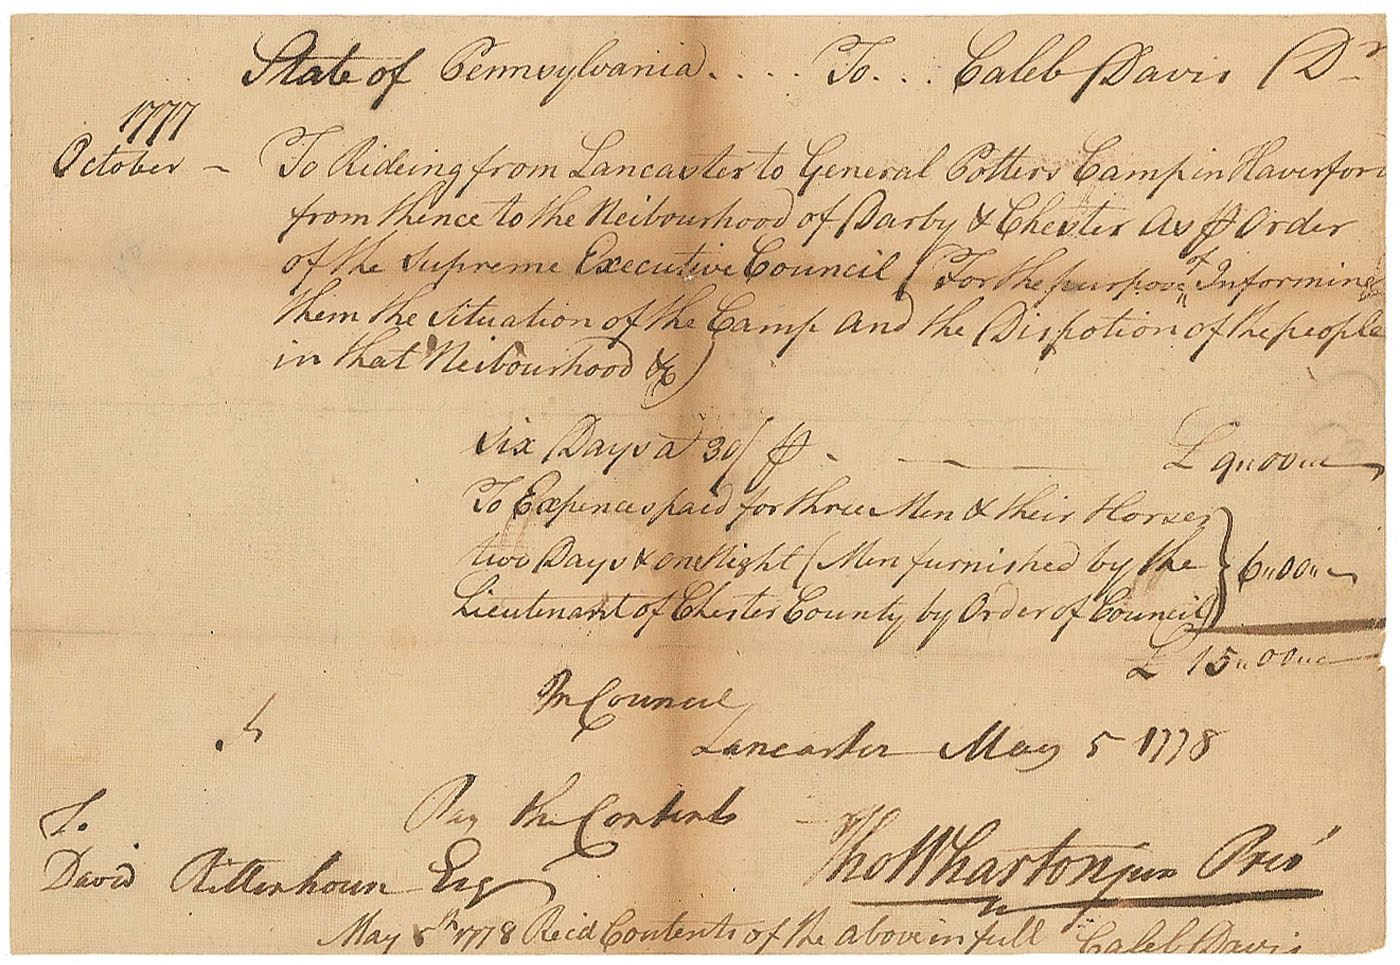 State of Pennsylvania .... To... Caleb Davis Dr
1777
October – To Rideing from Lancaster to General Potters Camp in Haverford
from thence to the Neibourhood of Darby & Chester As ⅌ Order
of the Supreme Executive Council (For the purpose of Informing
them the Situation of the Camp and the Dispotion of the people
in that Neibourhood &c)
Six Days a 30/ ⅌ . — £ 9"00"
To Expences paid for three Men & their Horses
two Days & one Night (Men furnished by the } 6"00"
Lieutenant of Chester County by Order of Council)
£ 15"00"
In Council
Lancaster May 5 1778
Pay the Contents
Tho Wharton jun Pres
To
David Rittenhouse Esq
May 5th 1778 Recd Contents of the above in full Caleb Davis